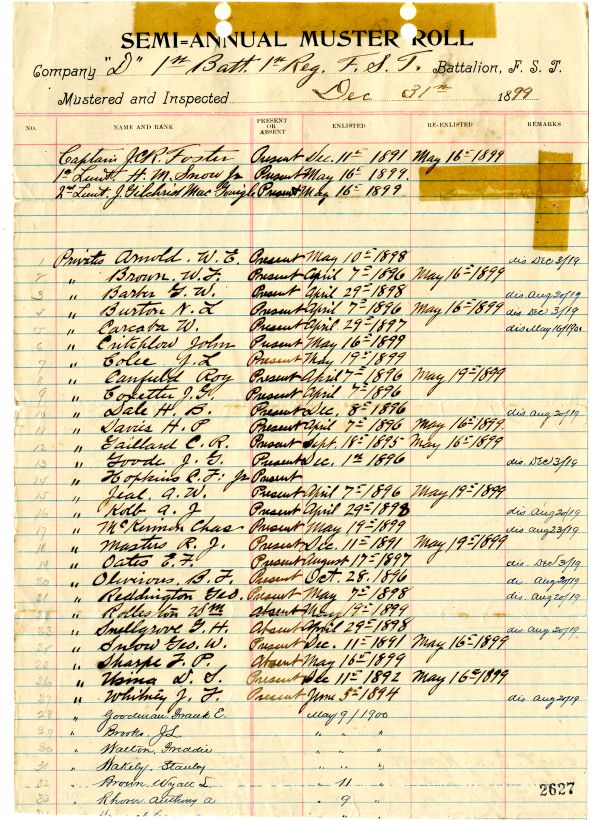 SEMI=ANNUAL MUSTER ROLL
Company "D" 1st Batt. 1st Reg. F. S. T. Battalion, F. S. T.
Mustered and Inspected Dec 31st 1899
NO. NAME AND RANK PRESENT OR ABSENT ENLISTED RE-ENLISTED REMARKS
Captain J.C.R. Foster Present Dec. 11th 1891 May 16th 1899
1st Lieut. H. M. Snow Jr Present May 16th 1899.
2nd Lieut. J. Gilchrist Mac Gonigle Present May 16th 1899
1 Privates Arnold. W. E. Present May 10th 1898 dis Dec 3/19
2 " Brown. W. F. Present April 7th 1896 May 16th 1899
3 " Barber G. W. Present April 29th 1898 dis Aug 20/19
4 " Burton N. L Present April 7th 1896 May 16th 1899 dis Dec 3/19
5 " Carcaba W. Present April 29th 1897 dis May 16/190
6 " Critchlow John Present May 16th 1899
7 " Colee Y. L Present May 19th 1899
8 " Canfield Roy Present April 7th 1896 May 19th 1899
9 " J. F. Present April 7th 1896
10 " Dale H. B. Present Dec. 8th 1896 dis Aug 20/19
11 " Davis H. P Present April 7th 1896 May 16th 1899.
12 " Gaillard C. R. Present Sept. 18th 1895 May 16th 1899
13 " Goode J. G. Present Dec. 1st 1896 dis. Dec 3/19
14 " Hopkins C. F. Jr Present
15 " Jeal A. W. Present April 7th 1896 May 19th 1899
16 " Kolb A. J Present April 29th 1898 dis Aug 20/19
17 " McKinnon Chas Present May 19th 1899 dis aug 23/19
18 " Masters R. J. Present Dec. 11th 1891 May 19th 1899
19 " Oates E. F. Present August 17th 1897 dis Dec 3/19
20 " Oliverous. B. F. Present Oct. 28. 1896 dis Aug 20/19
21 " Reddington Geo. Present May 7th 1898 dis Aug 20/19
22 " Rolleston Wm Absent May 19th 1899
23 " Snellgrove G. H. Absent April 29th 1898 dis Aug 20/19
24 " Snow Geo. W. Present Dec. 11th 1891 May 16th 1899
25 " Sharpe F. P Absent May 16th 1899
26 " Usina D. S. Present Dec 11th 1892 May 16th 1899
27 " Whitney J. F Present June 5th 1894 dis Aug 20/19
28 " Goodman Frank E. May 9/1900
29 " Brooks J.L. " " "
30 " Walton, Freddie " " "
31 " Wakely, Stanley " " "
32 " Brown Wyatt L " 11 "
33 " Anthony A " 9 "
2627